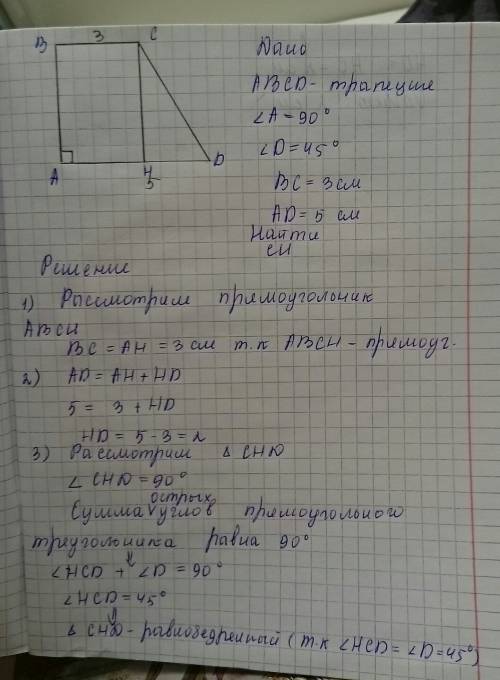 3
B C
A H D
5
Дано
ABCD - трапеция
∠A = 90°
∠D = 45°
BC = 3 см
AD = 5 см
Найти
CH
Решение
1) Рассмотрим прямоугольник
ABCH
BC = AH = 3 см т.к ABCH - прямоуг.
2) AD = AH + HD
5 = 3 + HD
HD = 5 - 3 = 2
3) Рассмотрим Δ CHD
∠ CHD = 90°
острых
Сумма углов прямоугольного
треугольника равна 90°
⇓
∠HCD + ∠D = 90°
∠HCD = 45°
⇓
Δ CHD - равнобедренный (т.к ∠HCD = ∠D = 45°)